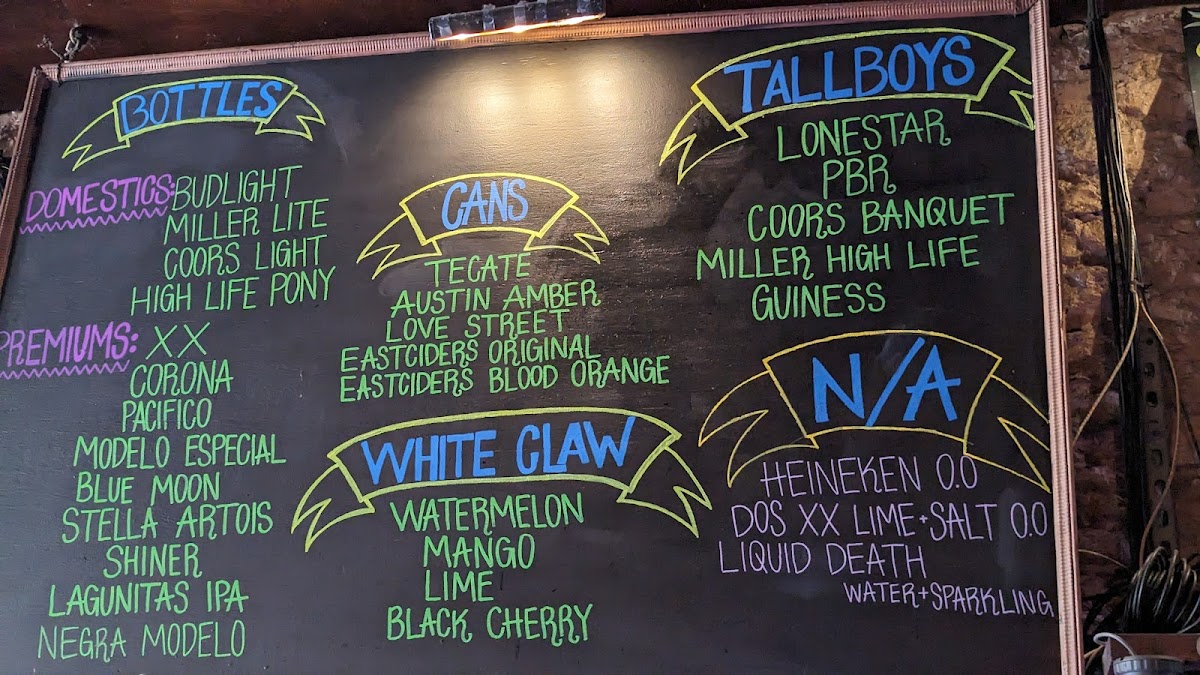 BOTTLES
DOMESTICS: BUDLIGHT
MILLER LITE
COORS LIGHT
HIGH LIFE PONY
PREMIUMS: XX
CORONA
PACIFICO
MODELO ESPECIAL
BLUE MOON
STELLA ARTOIS
SHINER
LAGUNITAS IPA
NEGRA MODELO
CANS
TECATE
AUSTIN AMBER
LOVE STREET
EASTCIDERS ORIGINAL
EASTCIDERS BLOOD ORANGE
WHITE CLAW
WATERMELON
MANGO
LIME
BLACK CHERRY
TALLBOYS
LONESTAR
PBR
COORS BANQUET
MILLER HIGH LIFE
GUINESS
N/A
HEINEKEN 0.0
DOS XX LIME+SALT 0.0
LIQUID DEATH
WATER+SPARKLING